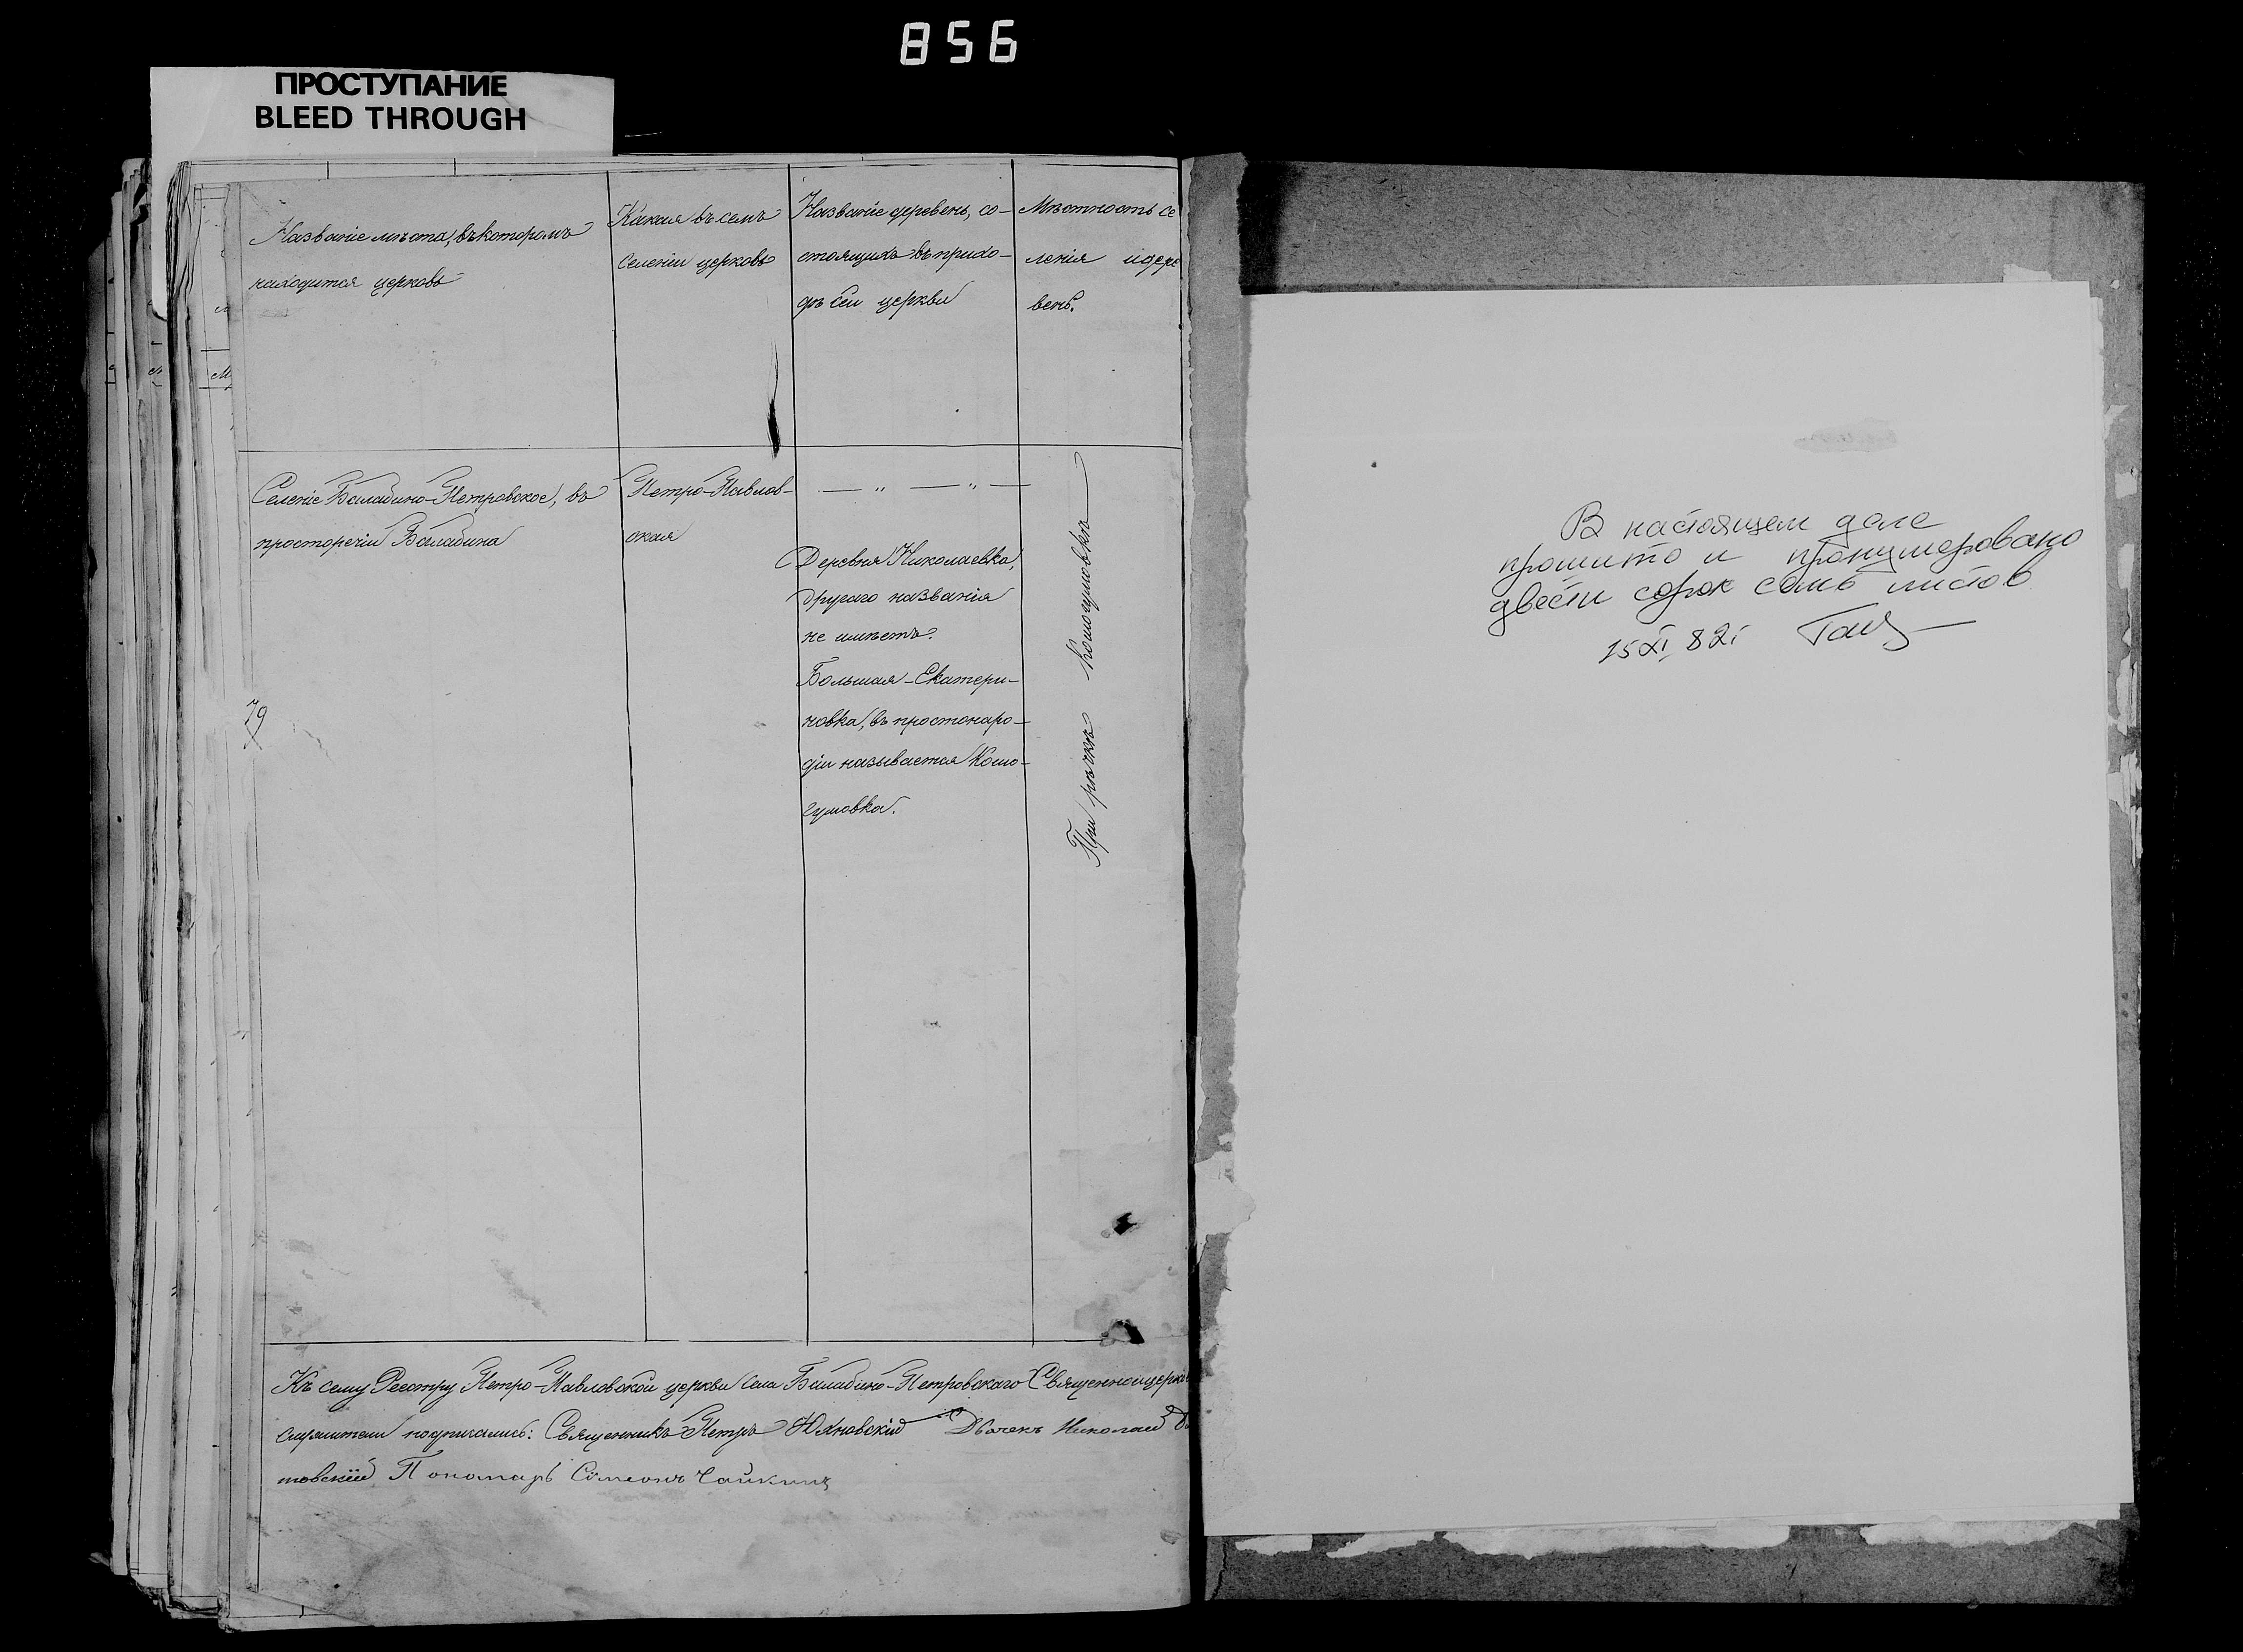 856
ПРОСТУПАНИЕ
BLEED THROUGH
Названіе мѣста, въ которомъ
находится церковь
Какая въ семъ
селеніи церковь
Названіе деревень, со-
стоящихъ въ прихо-
дѣ сей церкви
Мѣстность се
ленія и дере
вень.
Селеніе Балабино-Петровское, въ
просторечіи Балабина
Петро-Павлов-
ская
— „ — „ —
Деревня Николаевка,
другаго названія
не имѣетъ.
Большая-Екатери-
новка, въ простонаро-
діи называется Кошо-
гумовка.
При рѣчкѣ Кошогумовкѣ
79
Къ сему Реестру Петро-Павловской церкви села Балабино-Петровскаго Священноцерко
служители подписались: Священникъ Петръ Юхновскій Дьячекъ Николай
товскій Пономарь Сѵмеонъ Чайкинъ
В настоящем деле
прошито и пронумеровано
двести сорок семь листов
15 XI 82г